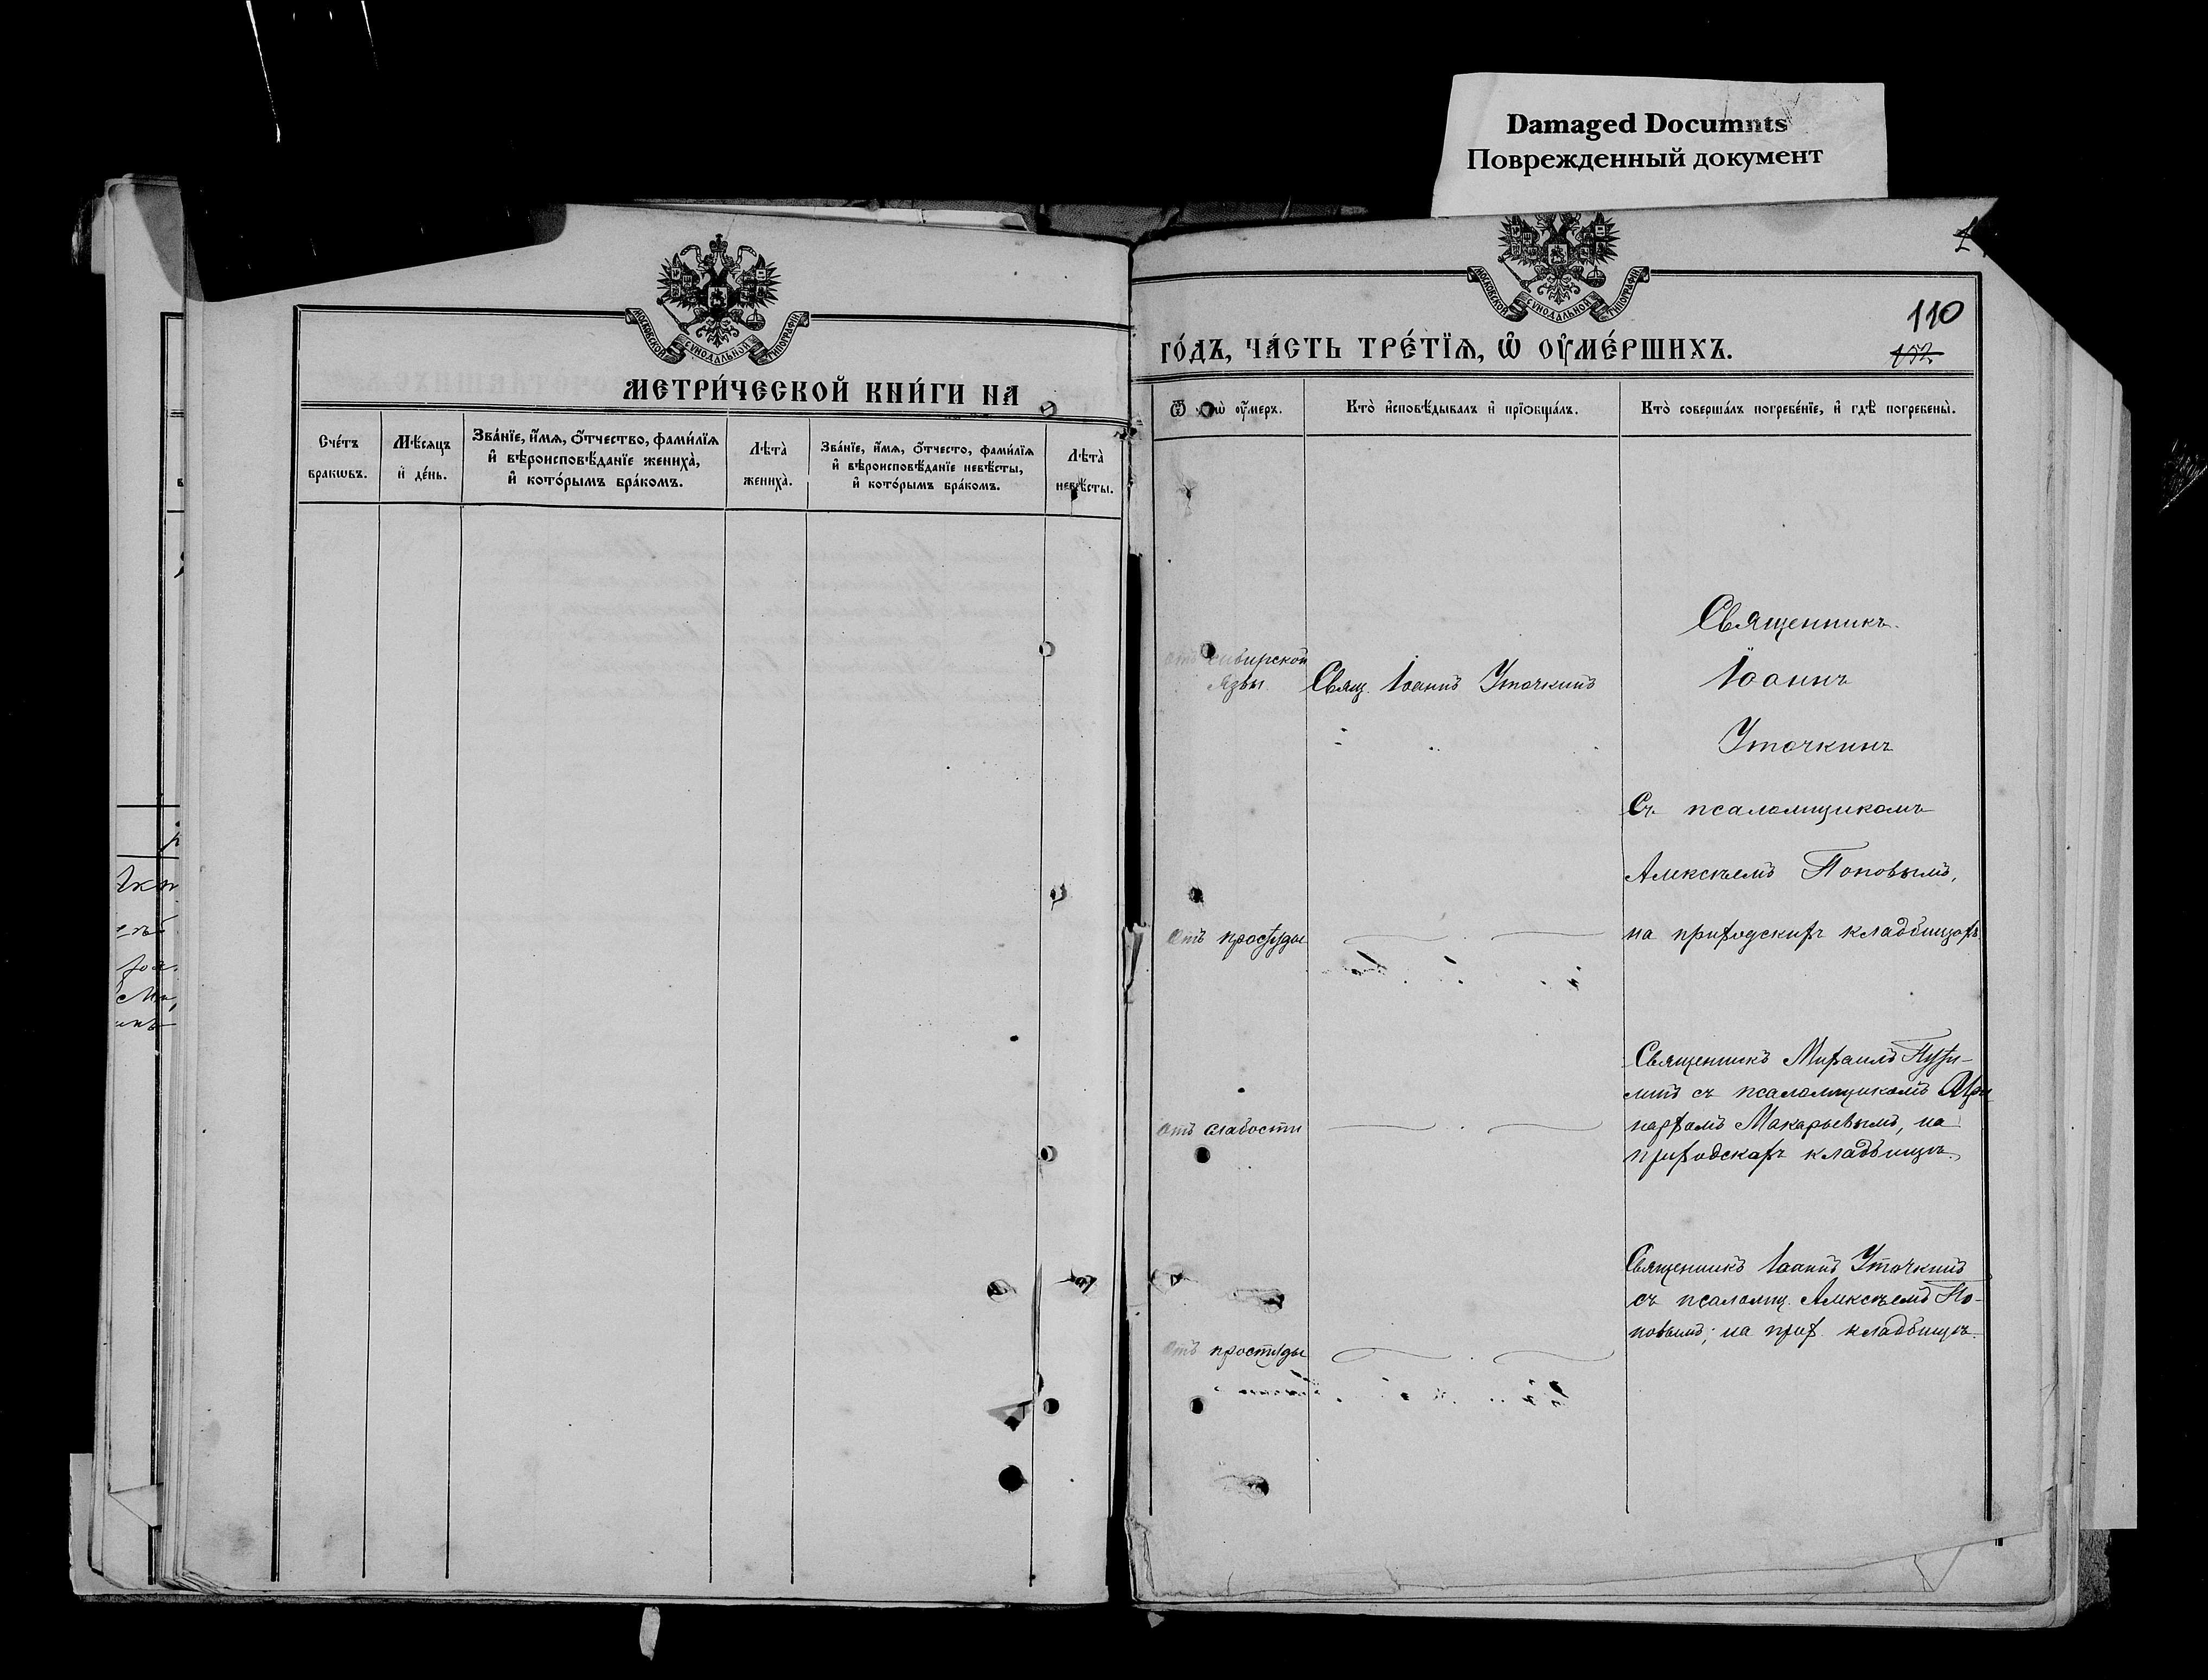 Damaged Documnts
Поврежденный документ
МОСКОВСКОЙ СѴНОДАЛЬНОЙ ТИПОГРАФІИ
МЕТРИ́ЧЕСКОЙ КНИ́ГИ НА
Сче́тъ бракѡвъ.
Мѣ́сяцъ и҆ де́нь.
Зва́нїе, и҆́мѧ, ѻ҆́тчество, фами́лїѧ
и҆ вѣроисповѣ́данїе жениха̀,
и҆ кото́рымъ бра́комъ.
Лѣта̀ жениха̀.
Зва́нїе, и҆́мѧ, ѻ҆́тчесто, фами́лїѧ
и҆ вѣроисповѣ́данїе невѣ́сты,
и҆ кото́рымъ бра́комъ.
Лѣта̀ невѣ́сты.
МОСКОВСКОЙ СѴНОДАЛЬНОЙ ТИПОГРАФІИ
110
152
ГО́ДЪ, ЧА́СТЬ ТРЕ́ТЇѦ, Ѡ҆ ОУ҆МЕ́РШИХЪ.
Ѿ оу҆́меръ.
Кто̀ и҆сповѣ́дывалъ и҆ прїѡбща́лъ.
Кто̀ соверша́лъ погребе́нїе, и҆ гдѣ̀ погребены̀.
отъ сибирской
язвы
Свящ. Іоаннъ Уточкинъ
Священникъ
Іоаннъ
Уточкинъ
Съ псаломщикомъ
Алексѣемъ Поповымъ,
на приходскихъ кладбищахъ
отъ простуды
Священникъ Михаилъ
съ псаломщикомъ
Макарьевымъ, на
приходскахъ кладбищѣ.
отъ слабости
Священникъ Іоаннъ Уточкинъ
съ псаломщ. Алексѣемъ По-
повымъ; на прих. кладбищѣ.
отъ простуды